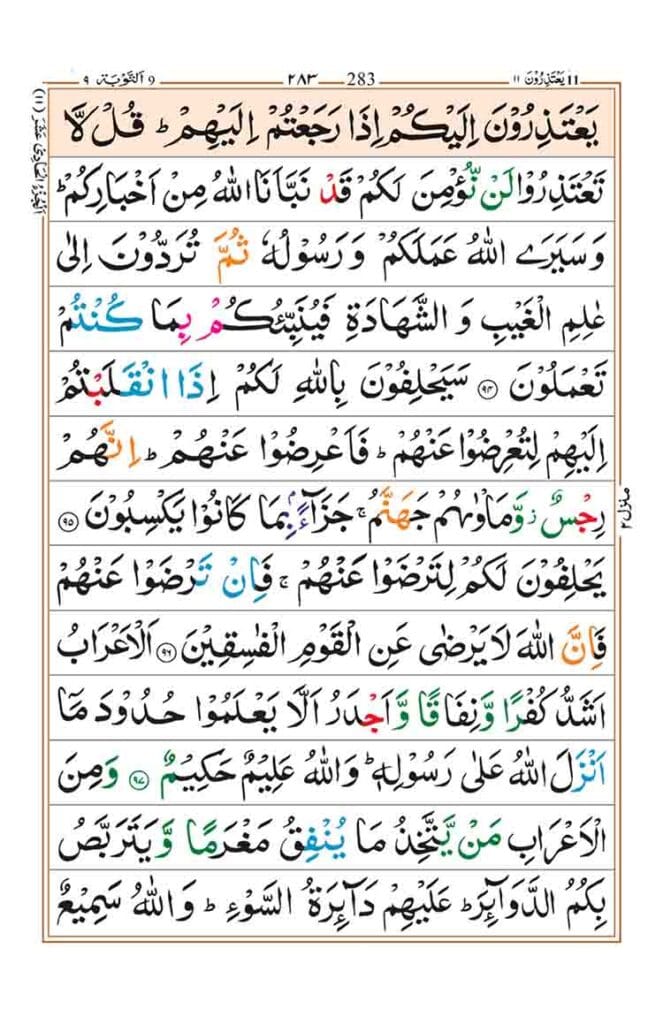 ١١ يَعْتَذِرُوْنَ ١١ 283 ٢٨٣ 9 اَلتَّوْبَة ٩
يَعْتَذِرُوْنَ اِلَيْكُمْ اِذَا رَجَعْتُمْ اِلَيْهِمْ ؕ قُلْ لَّا
تَعْتَذِرُوْا لَنْ نُّؤْمِنَ لَكُمْ قَدْ نَبَّاَنَا اللّٰهُ مِنْ اَخْبَارِكُمْ ؕ
وَ سَيَرَى اللّٰهُ عَمَلَكُمْ وَ رَسُوْلُهٗ ثُمَّ تُرَدُّوْنَ اِلٰى
عٰلِمِ الْغَيْبِ وَ الشَّهَادَةِ فَيُنَبِّئُكُمْ بِمَا كُنْتُمْ
تَعْمَلُوْنَ ﴿۹۴﴾ سَيَحْلِفُوْنَ بِاللّٰهِ لَكُمْ اِذَا انْقَلَبْتُمْ
اِلَيْهِمْ لِتُعْرِضُوْا عَنْهُمْ ؕ فَاَعْرِضُوْا عَنْهُمْ ؕ اِنَّهُمْ
رِجْسٌ ؗ وَّ مَاْوٰىهُمْ جَهَنَّمُ ۚ جَزَآءًۢ بِمَا كَانُوْا يَكْسِبُوْنَ ﴿۹۵﴾
يَحْلِفُوْنَ لَكُمْ لِتَرْضَوْا عَنْهُمْ ۚ فَاِنْ تَرْضَوْا عَنْهُمْ
فَاِنَّ اللّٰهَ لَا يَرْضٰى عَنِ الْقَوْمِ الْفٰسِقِيْنَ ﴿۹۶﴾ اَلْاَعْرَابُ
اَشَدُّ كُفْرًا وَّ نِفَاقًا وَّ اَجْدَرُ اَلَّا يَعْلَمُوْا حُدُوْدَ مَاۤ
اَنْزَلَ اللّٰهُ عَلٰى رَسُوْلِهٖ ؕ وَ اللّٰهُ عَلِيْمٌ حَكِيْمٌ ﴿۹۷﴾ وَ مِنَ
الْاَعْرَابِ مَنْ يَّتَّخِذُ مَا يُنْفِقُ مَغْرَمًا وَّ يَتَرَبَّصُ
بِكُمُ الدَّوَآئِرَ ؕ عَلَيْهِمْ دَآئِرَةُ السَّوْءِ ؕ وَ اللّٰهُ سَمِيْعٌ
اَلْجُزْءُ الْحَادِيْ عَشَرَ (١١)
منزل ٢